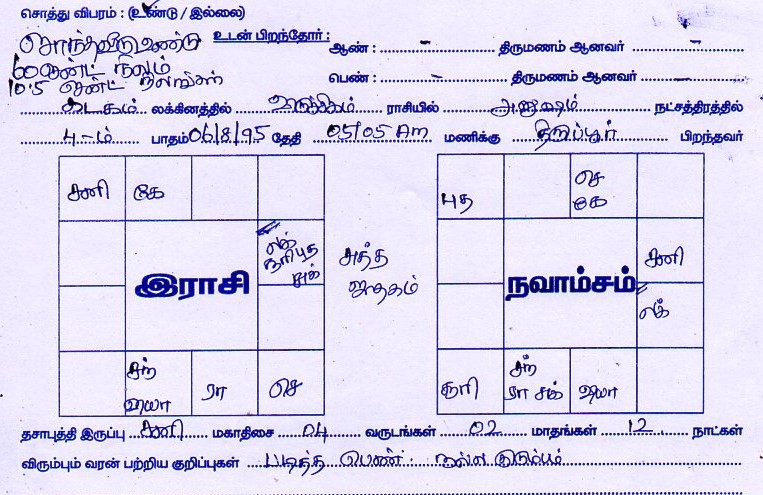 சொத்து விபரம் : (உண்டு / இல்லை)
சொந்தவீடு உண்டு உடன் பிறந்தோர் : ஆண் : - திருமணம் ஆனவர் -
பெண் : - திருமணம் ஆனவர் -
10.5
கடகம் லக்கினத்தில் ராசியில் அனுஷம் நட்சத்திரத்தில்
4-ம் பாதம் 06/8/95 தேதி 05/05 Am மணிக்கு திருப்பூர் பிறந்தவர்
சனி கே
லக்
சூரி புத
சுக்
இராசி
சந்
வியா ரா செ
ஜாதகம்
புத செ
கே
சனி
நவாம்சம்
லக்
சூரி சந்
ரா சுக் வியா
தசாபுத்தி இருப்பு சனி மகாதிசை 04 வருடங்கள் 02 மாதங்கள் 12 நாட்கள்
விரும்பும் வரன் பற்றிய குறிப்புகள் படித்த பெண். நல்ல குடும்பம்